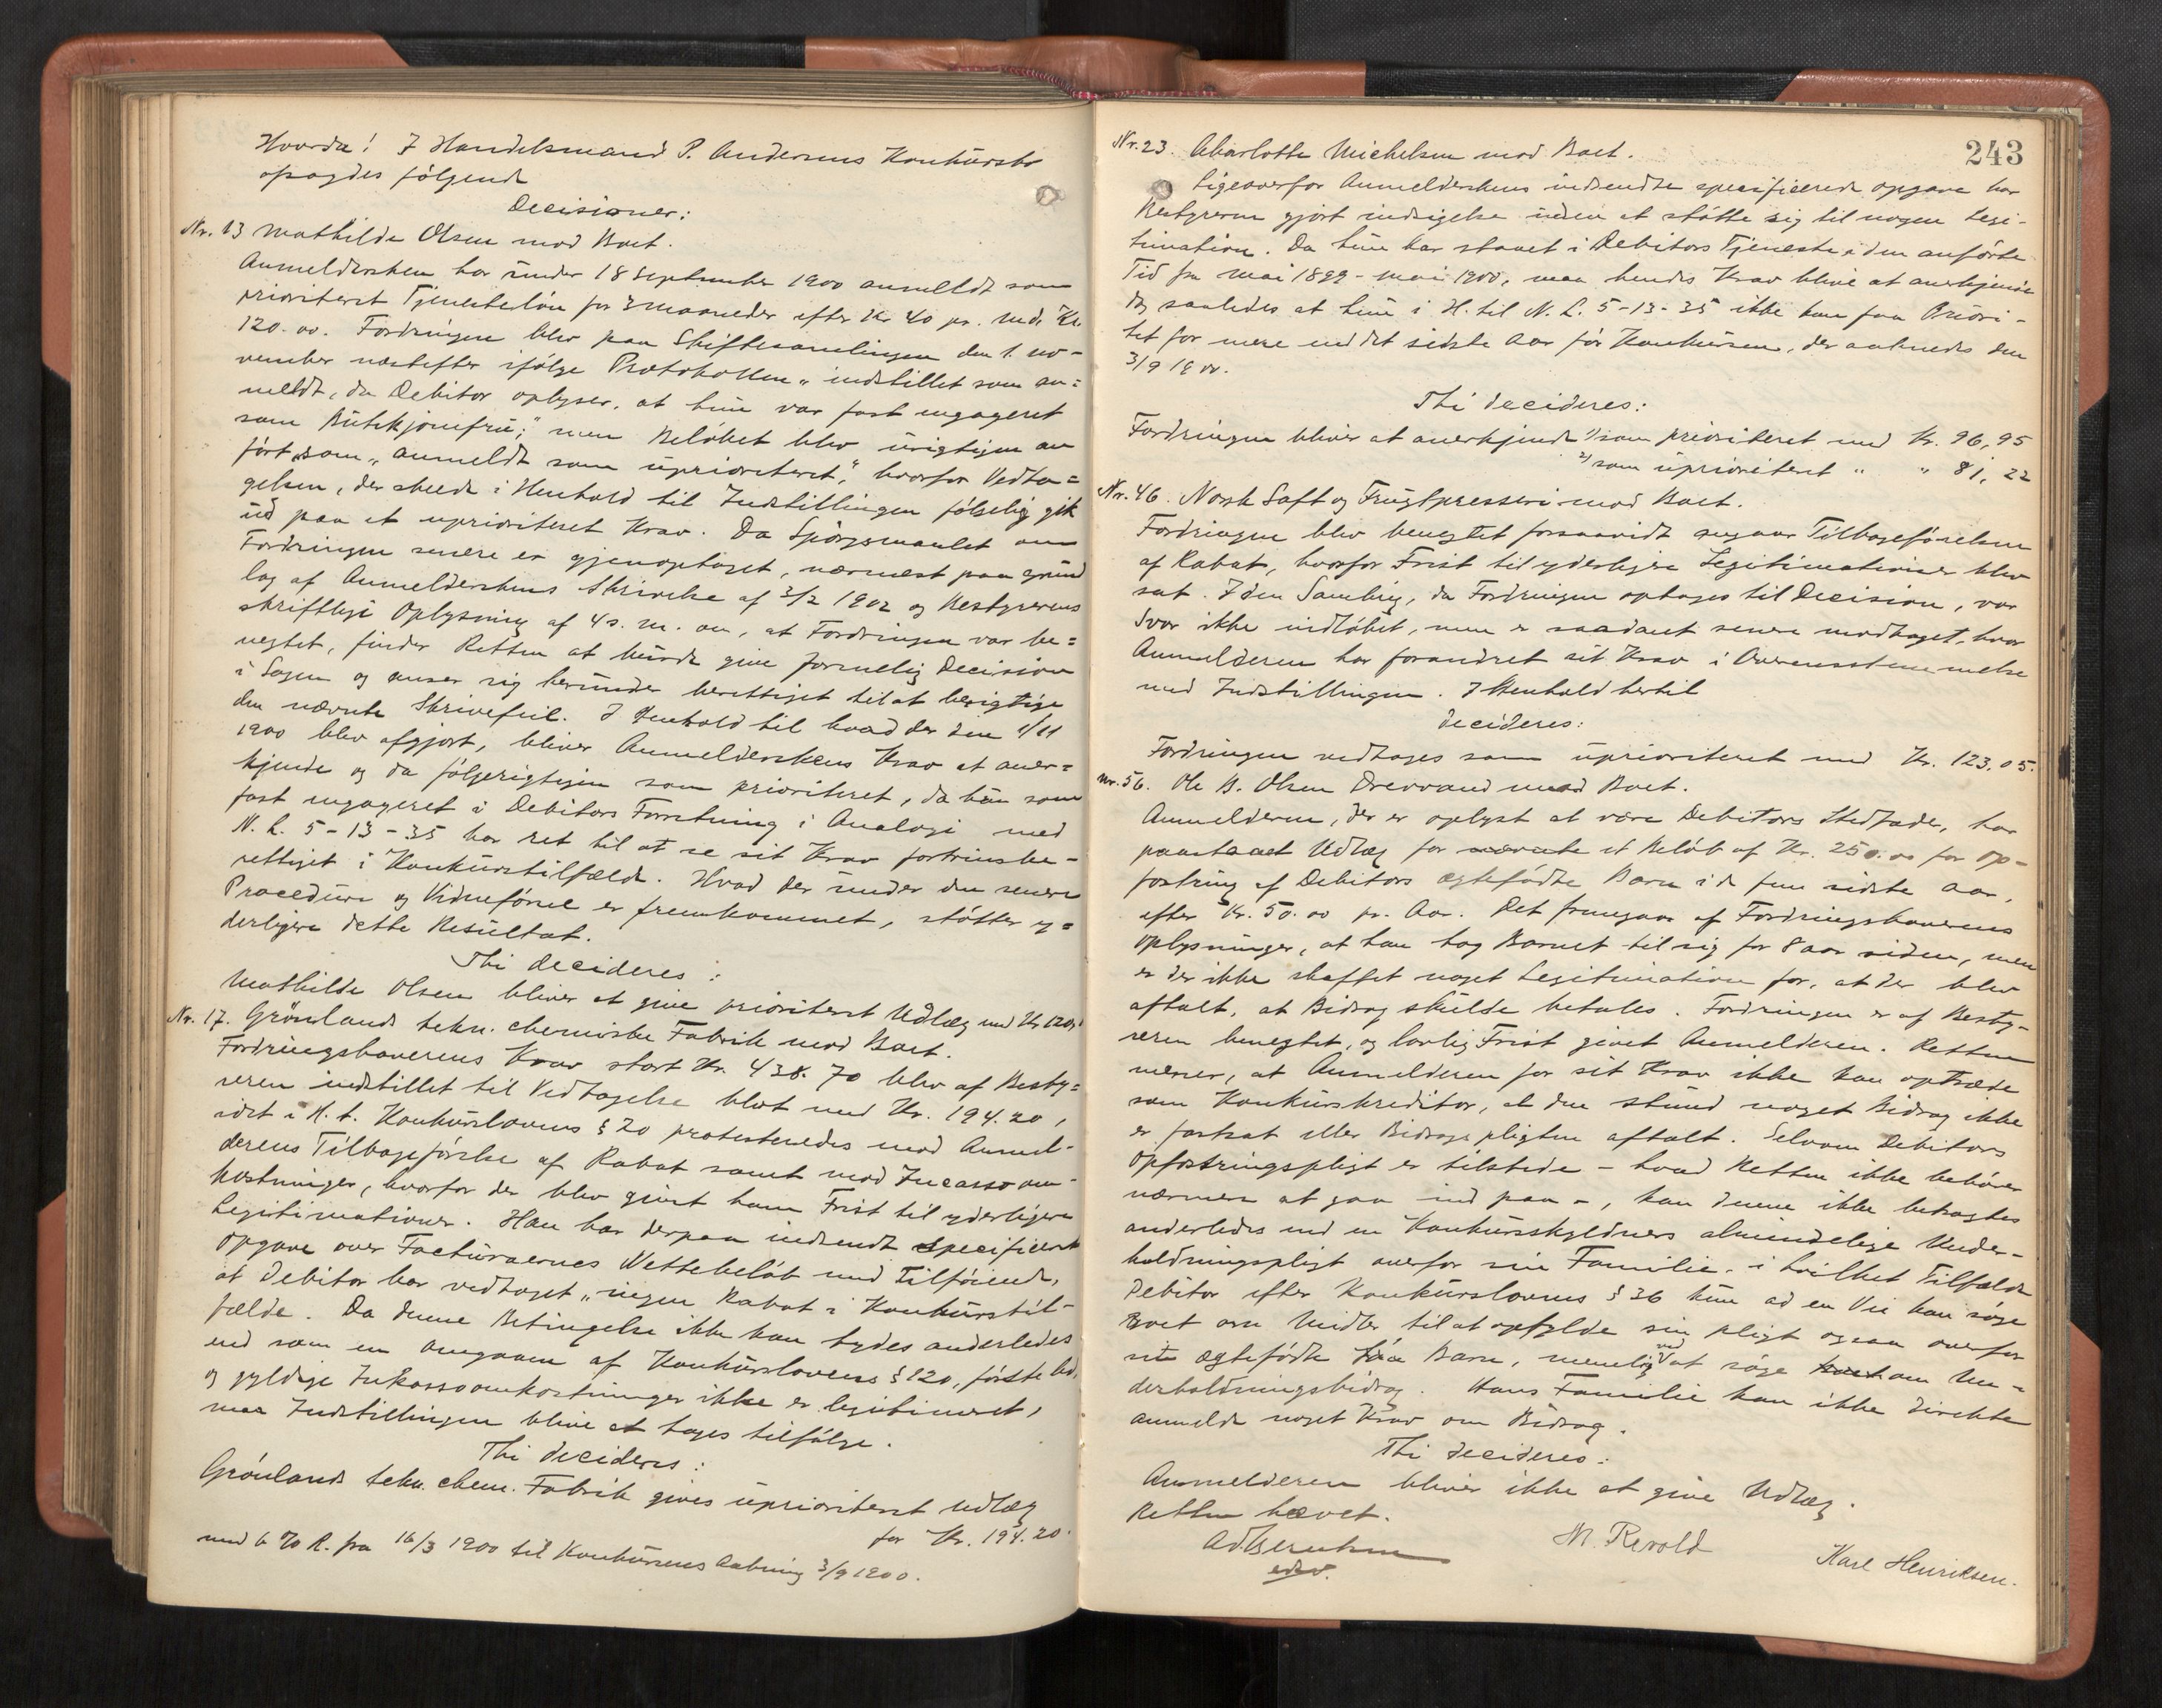 Hvorda! I Handelsmand P. Andersens Konkursbo
afsagdes følgende
Decisioner:
Nr. 13 Mathilde Olsen mod Boet.
Anmeldersken har under 18 September 1900 anmeldt som
prioriteret Tjenesteløn for 3 maaneder efter Kr 40 pr. md. Kr.
120.00. Fordringen blev paa Skiftesamlingen den 1. no-
vember næstefter ifølge Protokollen „indstillet som an=
meldt, da Debitor oplyser, at hun var fast engageret
som Butikjomfru;" men Beløbet blev urigtigen an
ført som „anmeldt som uprioriteret", hvorfor Vedta=
gelsen, der skede i Henhold til Indstillingen følgelig gik
ud paa et uprioriteret Krav. Da Spørgsmaalet om
Fordringen senere er gjenoptaget, nærmest paa grund
lag af Anmelderskens Skrivelse af 3/2 1902 og Bestyrerens
skriftlige Oplysning af 4 s. m. om, at Fordringen var be=
negtet, finder Retten at burde give formelig Decision
i Sagen og anser sig herunder berettiget til at berigtige
den nævnte Skrivefeil. I Henhold til hvad der den 1/11
1900 blev afgjort, bliver Anmelderskens Krav at aner=
kjende og da følgerigtigen som prioriteret, da hun som
fast engageret i Debitors Forretning i Analogi med
N. L. 5-13-35 har ret til at se sit Krav fortrinsbe-
rettiget i Konkurstilfælde. Hvad der under den senere
Procedure og Vidneførsel er fremkommet, støtter y=
derligere dette Resultat.
Thi decideres:
Mathilde Olsen bliver at give prioriteret Udlæg med Kr 120,-
Nr. 17. Grønlands tekn. chemiske Fabrik mod Boet.
Fordringshaverens Krav stort Kr. 438.70 blev af Besty=
reren indstillet til Vedtagelse blot med Kr. 194.20,
idet i H. t. Konkurslovens § 20 protesteredes mod Anmel-
derens Tilbageførelse af Rabat samt mod Incassoom-
kostninger, hvorfor der blev givet ham Frist til yderligere
Legitimationer. Han har derpaa indsendt specificeret
Opgave over Facturaernes Nettobeløb med Tilføiende,
at Debitor har vedtaget „ingen Rabat i Konkurstil-
fælde. Da denne Betingelse ikke kan tydes anderledes
end som en omgaaen af Konkurslovens § 120, første led,
og gyldige Inkassoomkostninger ikke er legitimeret,
maa Indstillingen blive at tages tilfølge.
Thi decideres:
Grønlands tekn. chem. Fabrik gives uprioriteret Udlæg
for Kr. 194.20
med 6 % R. fra 16/3 1900 til Konkursens Aabning 3/9 1900.
243
Nr. 23. Charlotte Michelsen mod Boet.
Ligeoverfor Anmelderskens indsendte specificerede opgave har
Bestyreren gjort indsigelse uden at støtte sig til nogen Legi-
timation. Da hun har staaet i Debitors Tjeneste i den anførte
Tid fra Mai 1899 - Mai 1900, maa hendes Krav blive at anerkjende
dog saaledes at hun i H. til N. L. 5-13-35 ikke kan faa Priori-
tet for mere end det sidste Aar før Konkursen, der aabnedes den
3/9 1900.
Thi decideres:
Fordringen bliver at anerkjende 1) som prioriteret med Kr. 96,95
2) som uprioriteret " " 81,22
Nr. 46. Norsk Saft og Frugtpresseri mod Boet.
Fordringen blev benegtet forsaavidt angaar Tilbageførelsen
af Rabat, hvorfor Frist til yderligere Legitimationer blev
sat. I den Samling, da Fordringen optoges til Decision, var
Svar ikke indløbet, men er saadant senere modtaget, hvor
Anmelderen har forandret sit Krav i Overensstemmelse
med Indstillingen. I Henhold hertil
decideres:
Fordringen vedtages som uprioriteret med Kr. 123.05.
Nr. 56. Ole B. Olsen Drevvand mod Boet.
Anmelderen, der er oplyst at være Debitors Stedfader, har
paastaaet Udlæg for nævnte et Beløb af Kr. 250.00 for Op-
fostring af Debitors ægtefødte Barn i de fem sidste Aar,
efter Kr. 50.00 pr. Aar. Det fremgaar af Fordringshaverens
Oplysninger, at han tog Barnet til sig for 8 aar siden, men
er der ikke skaffet noget Legitimation for, at der blev
aftalt, at Bidrag skulde betales. Fordringen er af Besty-
reren benegtet, og lovlig Frist givet Anmelderen. Retten
mener, at Anmelderen for sit Krav ikke kan optræde
som Konkurskreditor, al den stund noget Bidrag ikke
er fastsat eller Bidragspligten aftalt. Selvom Debitors
Opfostringspligt er tilstede – hvad Retten ikke behøver
nærmere at gaa ind paa –, kan denne ikke betragtes
anderledes end en Konkursskyldners almindelige Under-
holdningspligt overfor sin Familie, i hvilket Tilfælde
Debitor efter Konkurslovens § 36 kun ad en Vei kan søge
Boet om Midler til at opfylde sin pligt ogsaa overfor
sit ægtefødte Barn, nemlig ved at søge Boet om Un-
derholdningsbidrag. Hans Familie kan ikke direkte
anmelde noget Krav om Bidrag.
Thi decideres:
Anmelderen bliver ikke at give Udlæg.
Retten hævet.
M. Revold
Karl Henriksen.